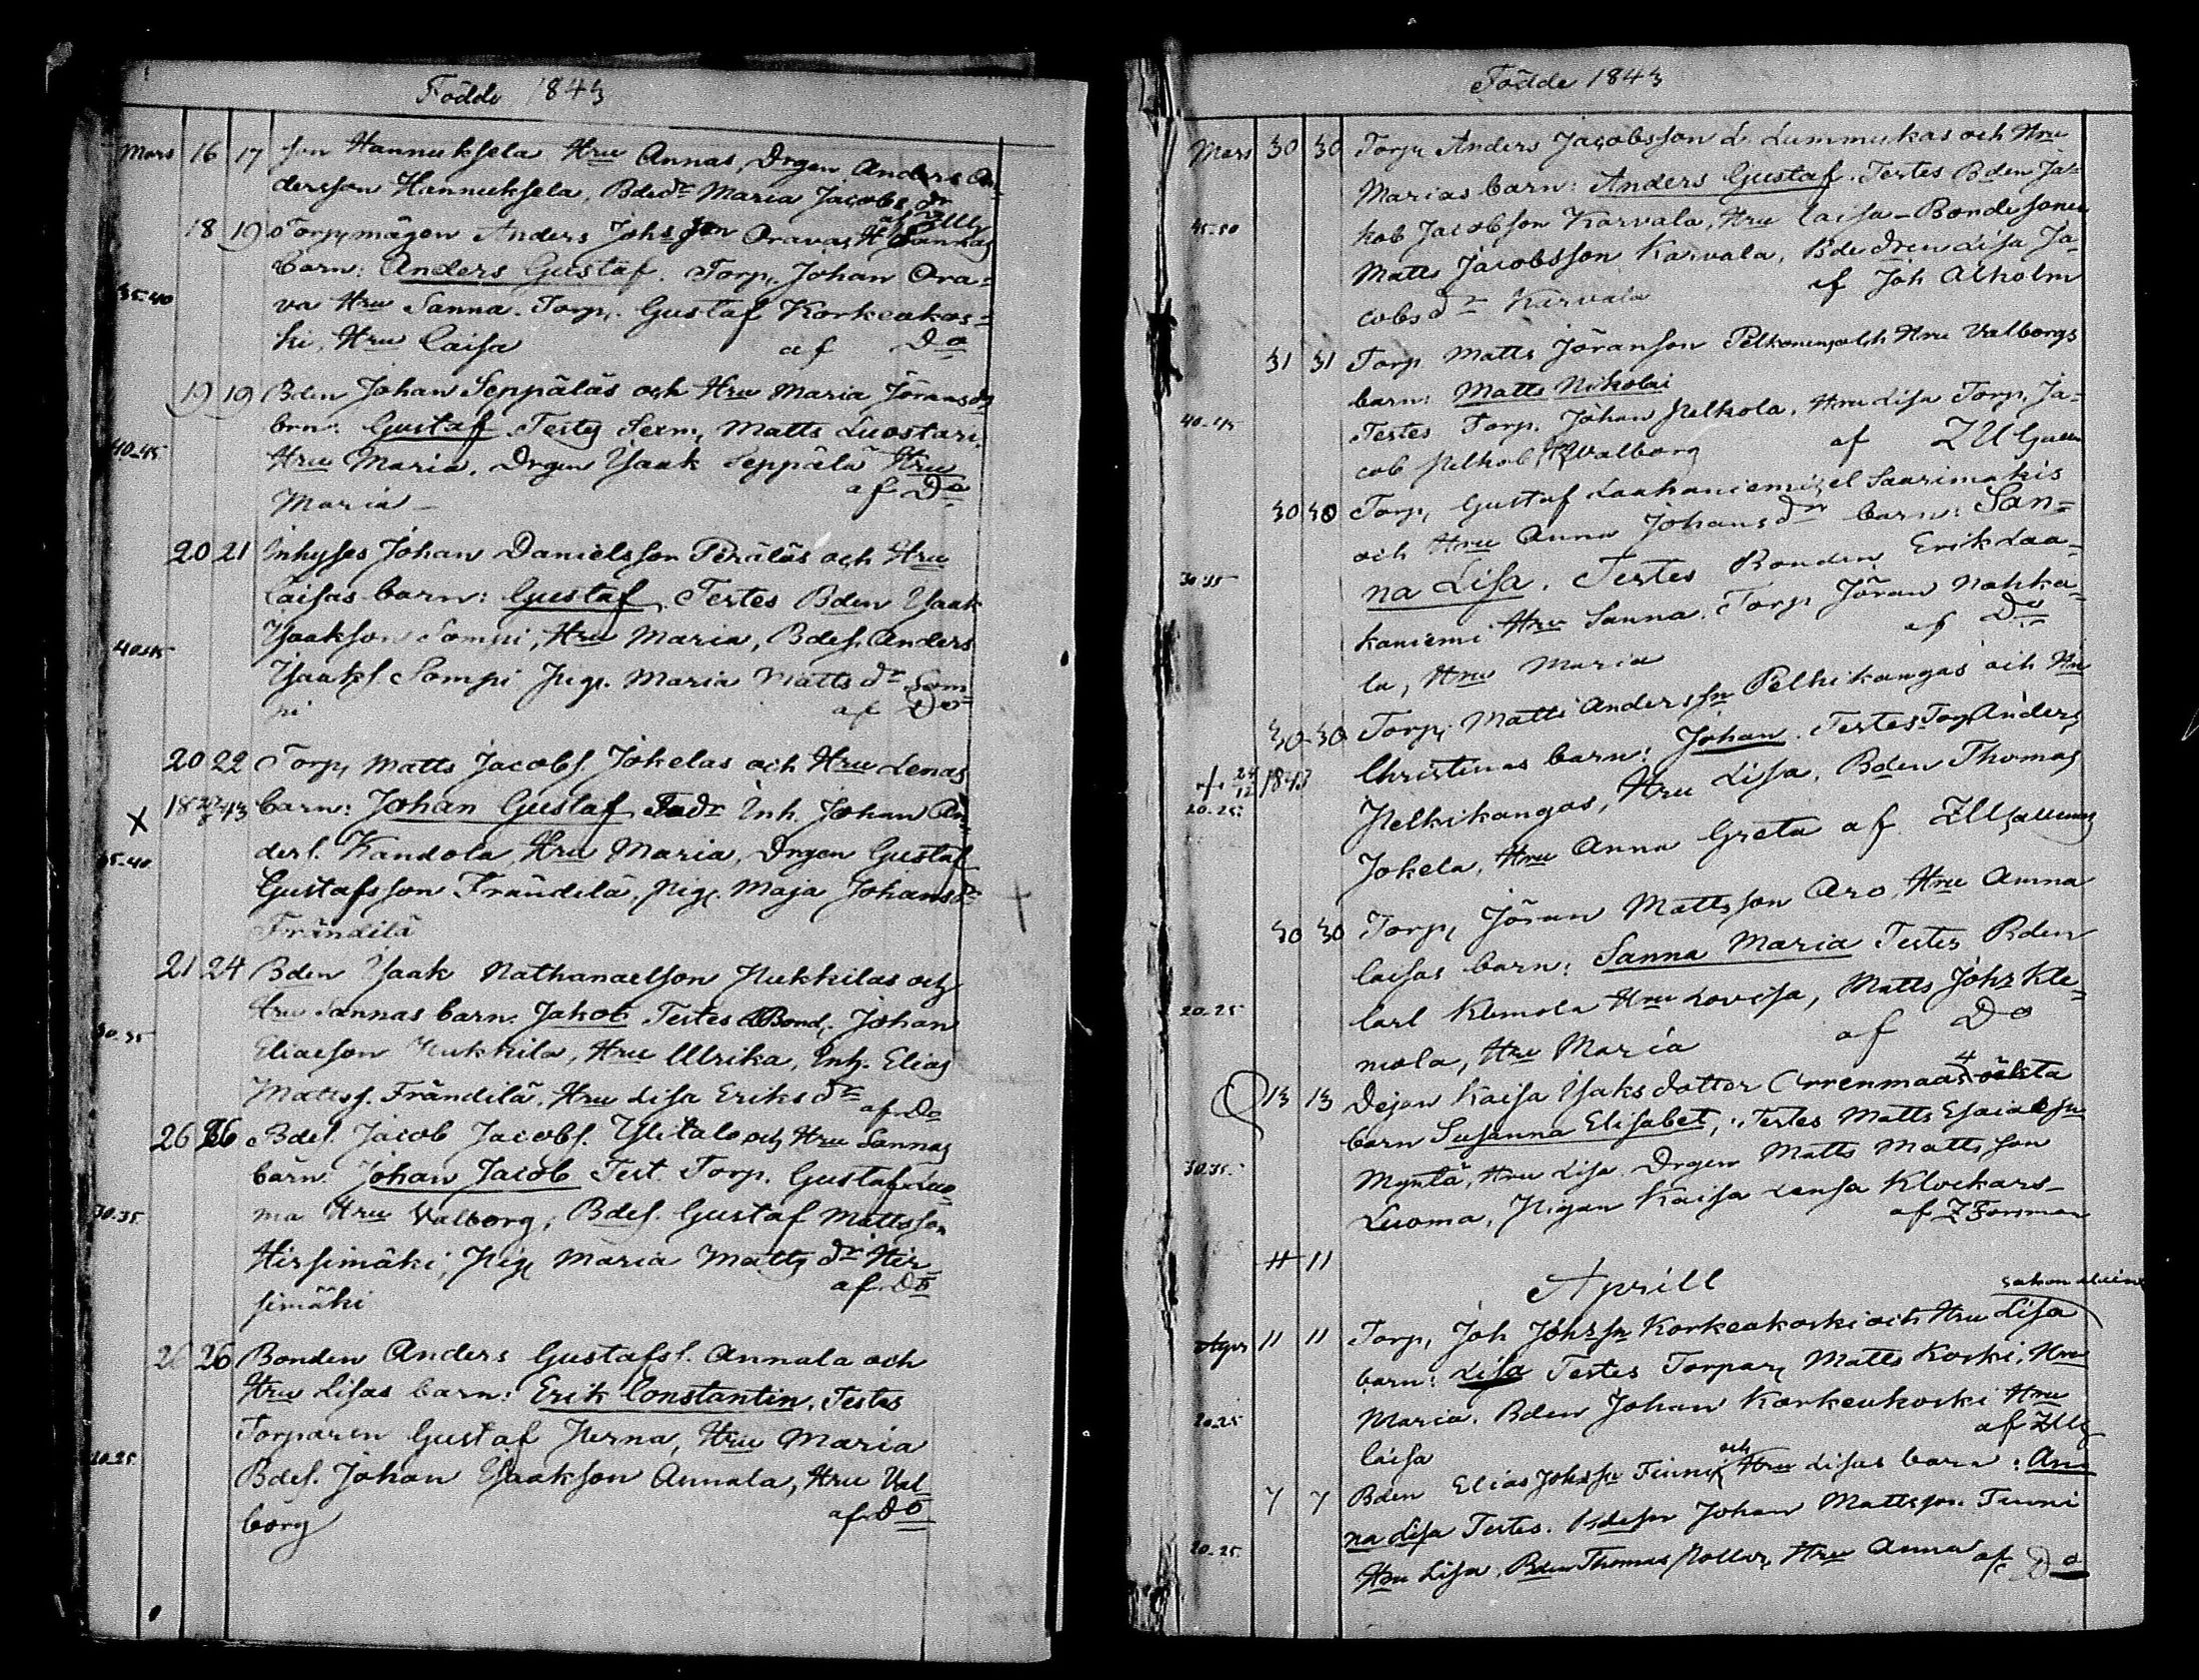 Födde 1843
Mars 16 17 son Hannuksela Hru Annas, Drgen Anders An=
dersson Hannuksela, Bdedr Maria Jacobs dr
af ZUllg
18 19 Torp, mågen Anders Johs son Oravas H Sannas
barn: Anders Gustaf. Torp. Johan Ora=
35-40 va Hru Sanna. Torp. Gustaf Korkeakos=
ki, Hru Caisa af Do
19 19 Bden Johan Seppäläs och Hru Maria Jörans dr
brn: Gustaf Testes Sexm, Matts Luostari,
40-45 Hru Maria, Drgen Ysaak Seppälä Hru
Maria af Do
20 21 Inhyses Johan Danielsson Peräläs och Hru
Caisas barn: Gustaf, Testes Bden Ysaak
40-45 Ysaakson Sompi, Hru Maria, Bdes. Anders
Ysaaks Sompi Pig. Maria Matts dr Som=
pi af Do
20 22 Torp, Matts Jacobs. Jokelas och Hru Lenas
X 18 43 barn: Johan Gustaf, Inh. Johan An=
35-40 ders. Kandola, Hru Maria, Drgen Gustaf
Gustafsson Frändilä, Pig. Maja Johans dr
Frändilä
21 24 Bden Ysaak Nathanaelson Pukkilas och
Hru Sannas barn. Jakob Testes Bond, Johan
30-35 Eliaeson Pukkila, Hru Ulrika, Inh. Elias
Mattss. Frändilä, Hru Lisa Eriks dr af Do
26 26 Bdes. Jacob Jacobs. Ylitalo och Hru Sannas
barn. Johan Jacob Test. Torp. Gustaf Luo=
30-35 ma Hru Valborg, Bdes. Gustaf Mattsson
Hirsimäki, Pig. Maria Matts dr Hir=
simäki af Do
26 26 Bonden Anders Gustafs. Annala och
Hru Lisas barn: Erik Constantin, Testes
Torparen Gustaf Perna, Hru Maria
20-25 Bdes. Johan Ysaakson Annala, Hru Val=
borg af Do
Födde 1843
Mars 30 30 Torp, Anders Jacobsson L. Lummukas och Hru
Marias barn: Anders Gustaf. Testes Bden Ja=
45-50 kob Jacobson Karvala, Hru Caisa - Bondesonen
Matts Jacobsson Karvala, Bde dren Lisa Ja=
cobs dr Karvala af Joh Alholm
31 31 Torp Matts Jöranson Pelkonens och Hru Valborgs
barn: Matts Nikolai
40-45 Testes Torp. Johan Pelkola, Hru Lisa Torp, Ja=
cob Pelkola, Valborg af ZU
30 30 Torp, Gustaf Laakaniemi, el Saarimäkis
och Hru Anna Johans dr barn: San=
30-35 na Lisa. Testes Bonden Erik Laa=
kaniemi Hru Sanna. Torp Jöran Nahka=
la, Hru Maria af Do
30 30 Torp, Matts Andersson Pelkikangas och Hru
24/12 1843 Christinas barn: Johan. Testes Torp Anders
20-25 Pelkikangas, Hru Lisa, Bden Thomas
Jokela, Hru Anna Greta af ZU
30 30 Torp, Jöran Mattsson Aro, Hru Anna
Caisas barn: Sanna Maria Testes Bden
20-25 Carl Klemola Hru Lovisa, Matts Johs Kle=
mola, Hru Maria af Do
4
13 13 Dejan Kaisa Ysaks dotter Orrenmaas oäkta
barn Susanna Elisabet, Testes Matts Esaiaeson
30-35 Myntä, Hru Lisa Drgen Matts Mattsson
Luoma, Pigan Kaisa Klockars
af Z Forsman
11 11
Aprill
Apr 11 11 Torp, Joh Johsson Korkeakoski och Hru Lisa
barn: Lisa Testes Torpar, Matts Koski, Hru
20-25 Maria. Bden Johan Korkeakoski Hru
Caisa af ZUllg
7 7 Bden Elias Johsson Tinni och Hru Lisas barn: An=
na Lisa Testes. Bdeson Johan Mattsson Tinni
20-25 Hru Lisa, Bden Thomas Pollar, Hru Anna af Do